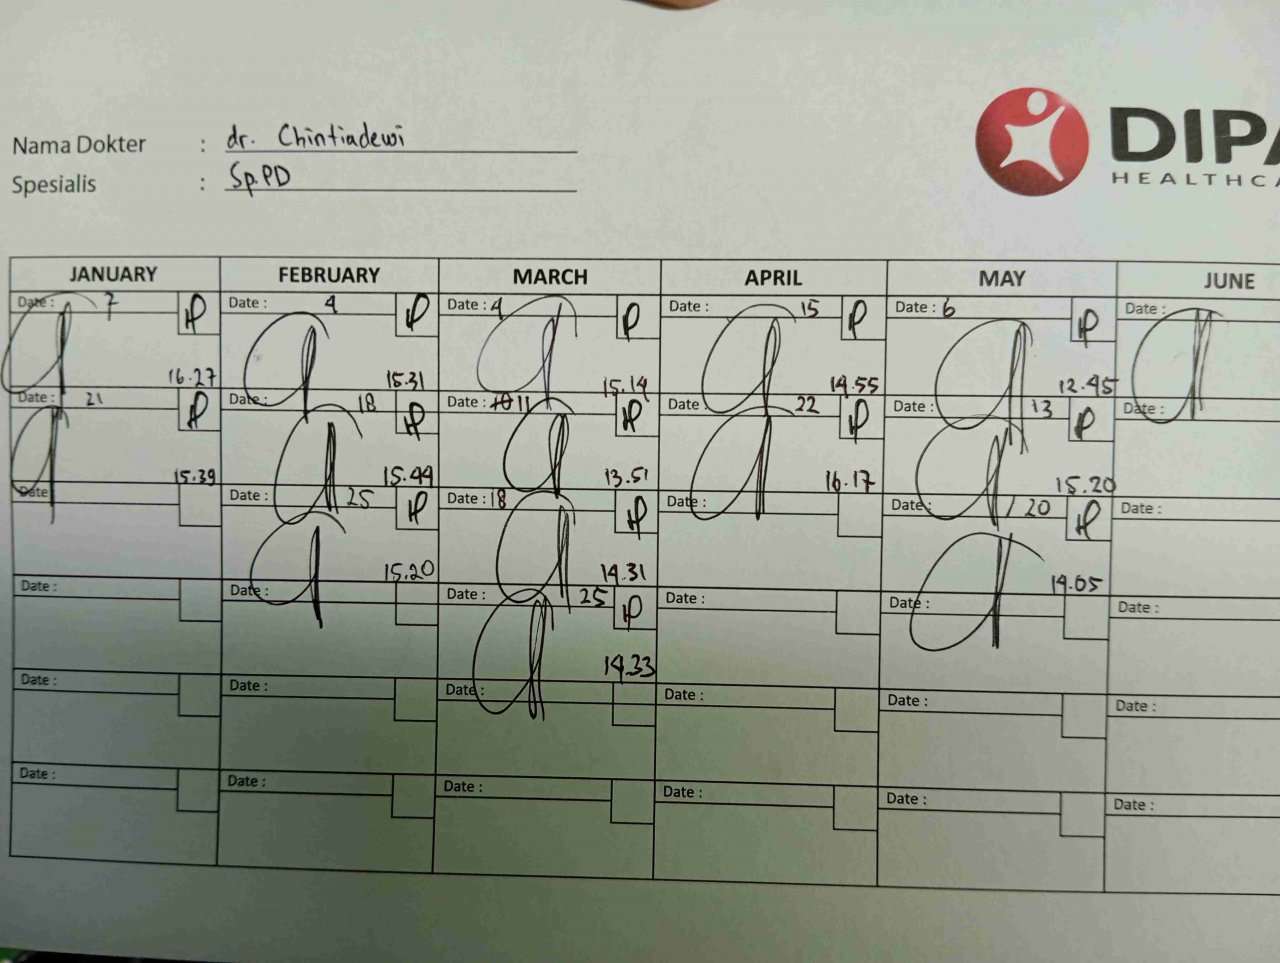 Nama Dokter : dr. Chintiadewi
Spesialis : Sp.PD
DIPA
HEALTHCA
JANUARY FEBRUARY MARCH APRIL MAY JUNE
Date : 7 Date : 4 Date : 4 Date : 15 Date : 6 Date :
16.27 15.31 15.14 14.55 12.45
Date : 21 Date : 18 Date : 10 11 Date : 22 Date : 13 Date :
15.39 15.44 13.51 16.17 15.20
Date Date : 25 Date : 18 Date : Date : 20 Date :
15.20 14.31 14.05
Date : Date : Date : 25 Date : Date : Date :
14.33
Date : Date : Date : Date : Date : Date :
Date : Date : Date : Date : Date : Date :